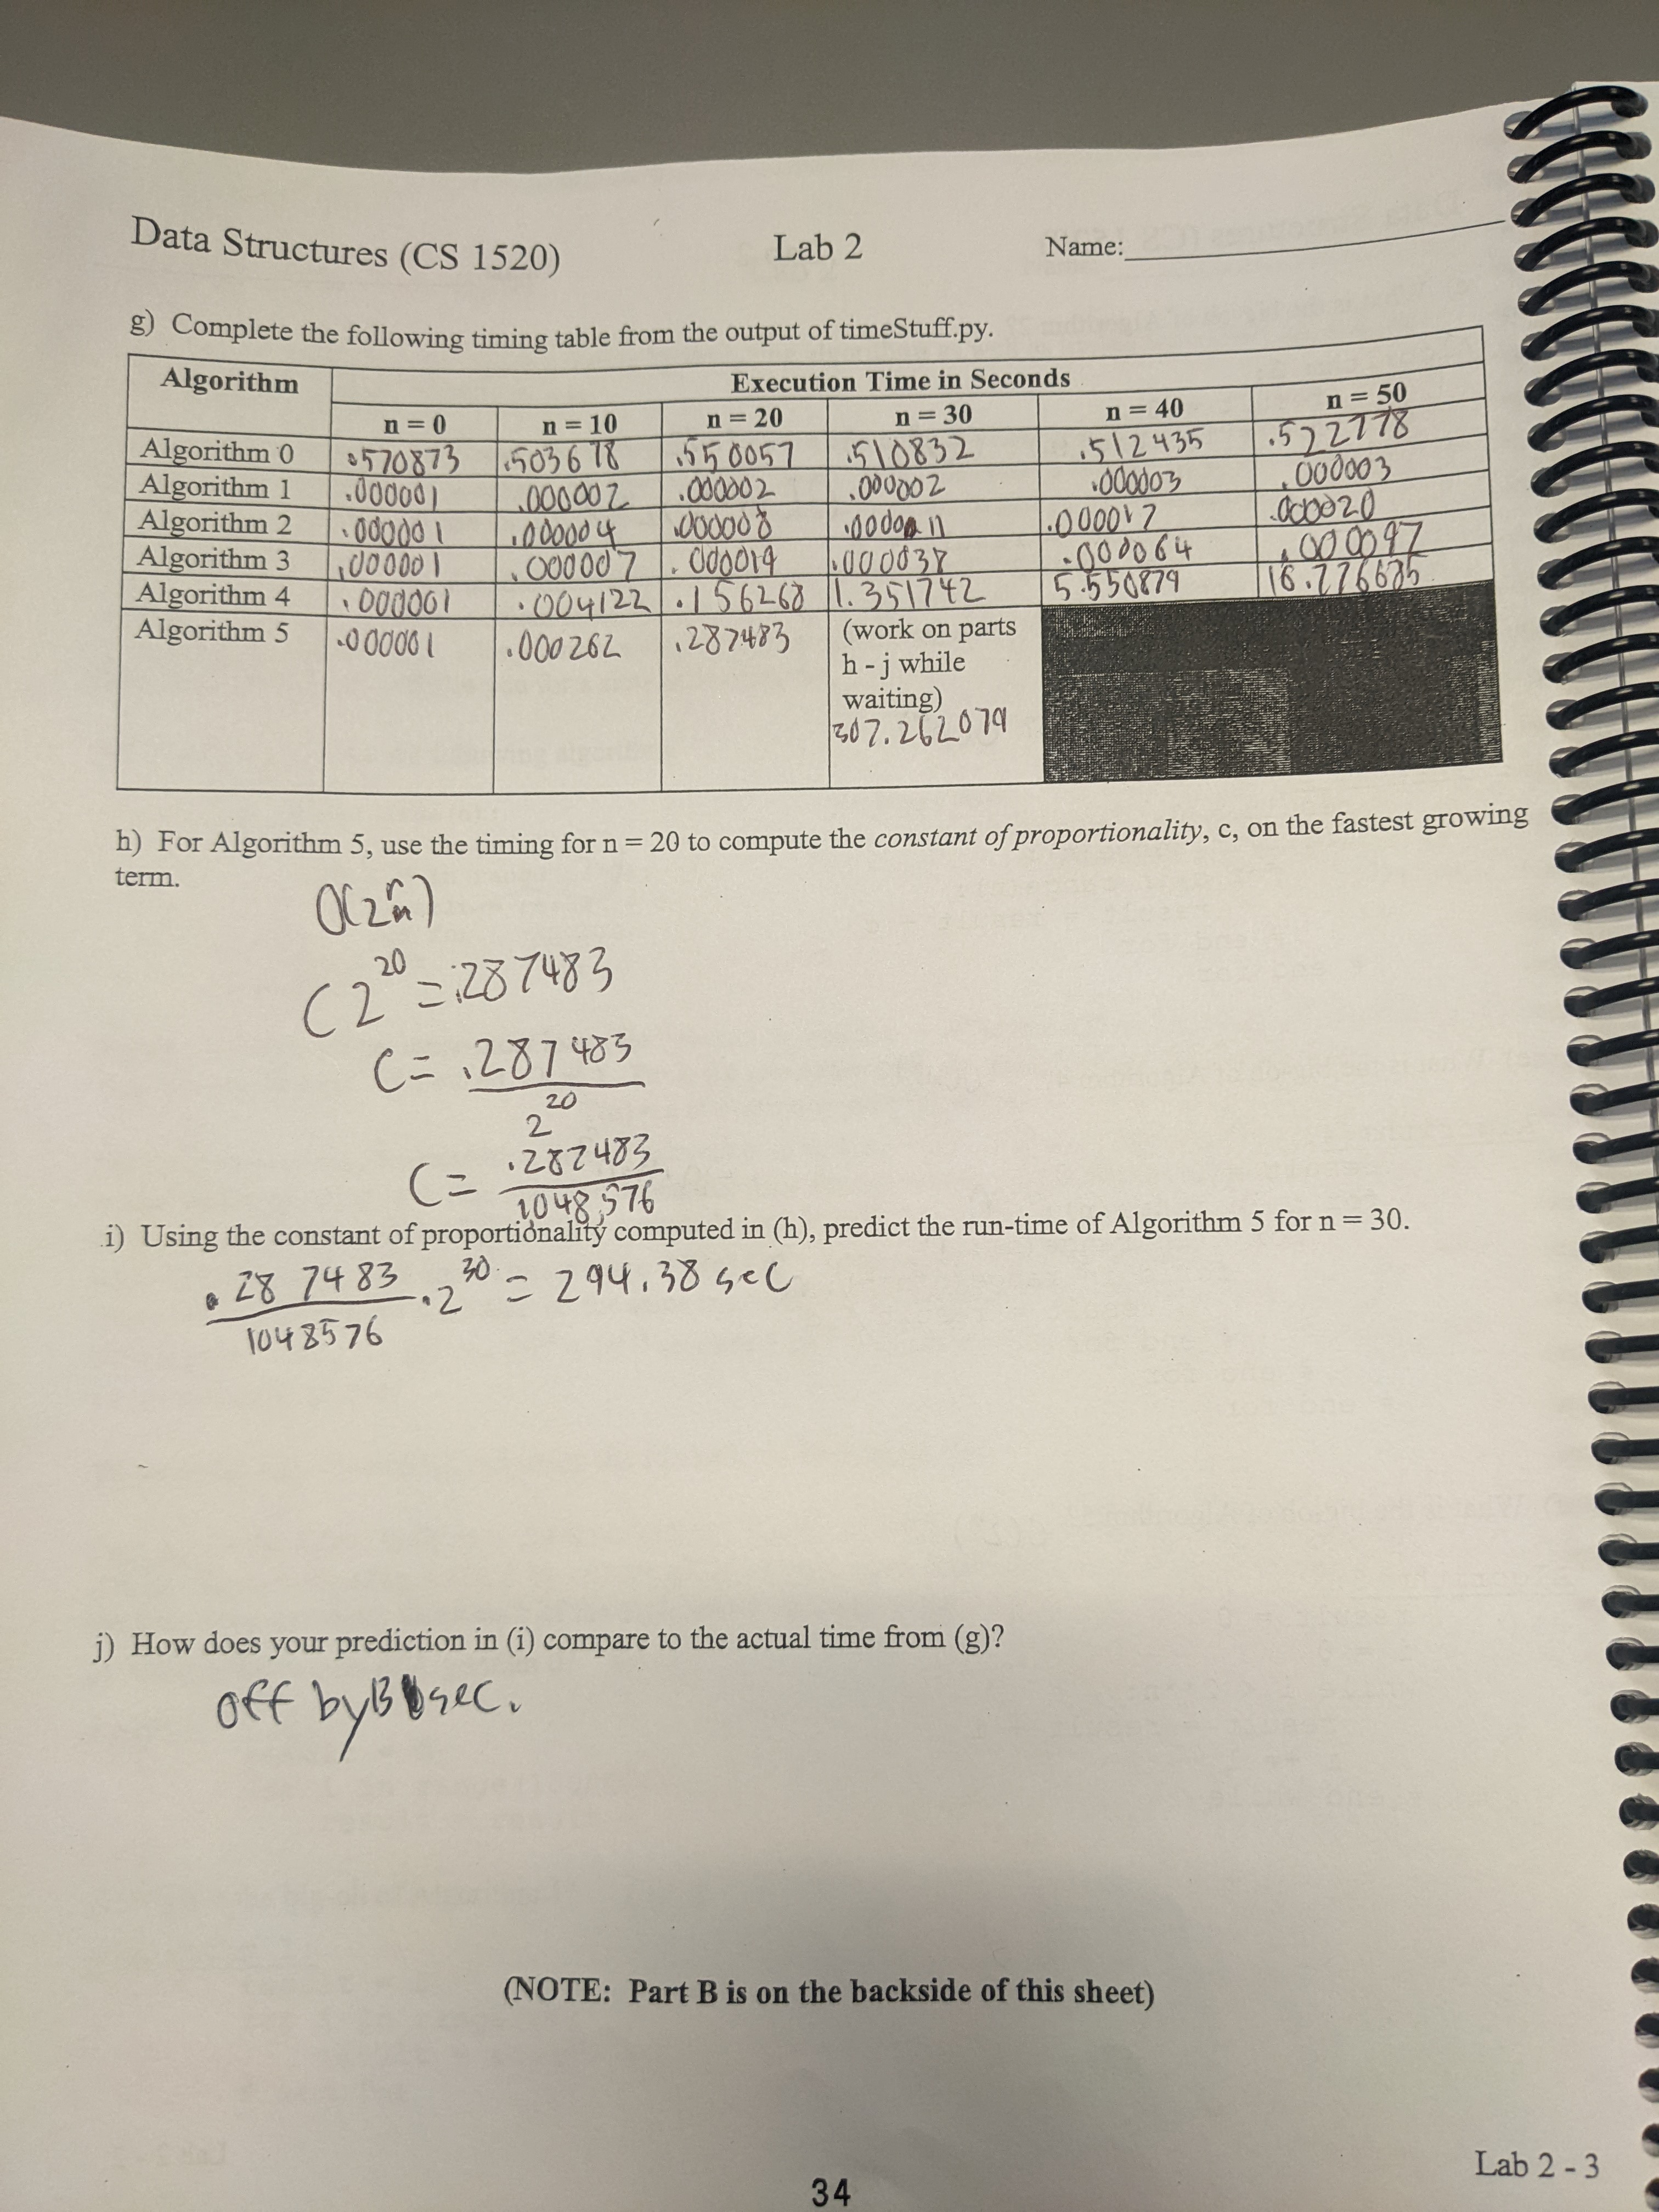 Data Structures (CS 1520) Lab 2 Name:
g) Complete the following timing table from the output of timeStuff.py.
Algorithm Execution Time in Seconds
n = 0 n = 10 n = 20 n = 30 n = 40 n = 50
Algorithm 0 .570873 .503678 .550057 .510832 .512435 .522778
Algorithm 1 .000001 .000002 .000002 .000002 .000003 .000003
Algorithm 2 .000001 .000004 .000008 .000011 .000017 .000020
Algorithm 3 .000001 .000007 .000019 .000038 .000064 .000097
Algorithm 4 .000001 .004122 .156268 1.351742 5.550879
Algorithm 5 .000001 .000262 .287483 (work on parts
h - j while
waiting)
307.262079
h) For Algorithm 5, use the timing for n = 20 to compute the constant of proportionality, c, on the fastest growing
term.
O(2^n)
C 2^20 = .287483
C = .287483
2^20
C = .287483
1048576
i) Using the constant of proportionality computed in (h), predict the run-time of Algorithm 5 for n = 30.
.287483 · 2^30 = 294.38 sec
1048576
j) How does your prediction in (i) compare to the actual time from (g)?
off by 13 sec.
(NOTE: Part B is on the backside of this sheet)
Lab 2 - 3
34